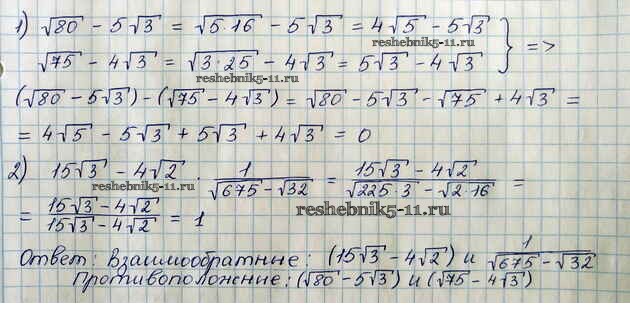 1) √80 - 5√3 = √5·16 - 5√3 = 4√5 - 5√3 } =>
reshebnik5-11.ru
√75 - 4√3 = √3·25 - 4√3 = 5√3 - 4√3
reshebnik5-11.ru
(√80 - 5√3) - (√75 - 4√3) = √80 - 5√3 - √75 + 4√3 =
= 4√5 - 5√3 + 5√3 + 4√3 = 0
2) 15√3 - 4√2 · 1/(√675 - √32) = (15√3 - 4√2)/(√225·3 - √2·16) =
reshebnik5-11.ru
= (15√3 - 4√2)/(15√3 - 4√2) = 1
reshebnik5-11.ru
Ответ: Взаимообратные: (15√3 - 4√2) и 1/(√675 - √32)
Противоположение: (√80 - 5√3) и (√75 - 4√3)